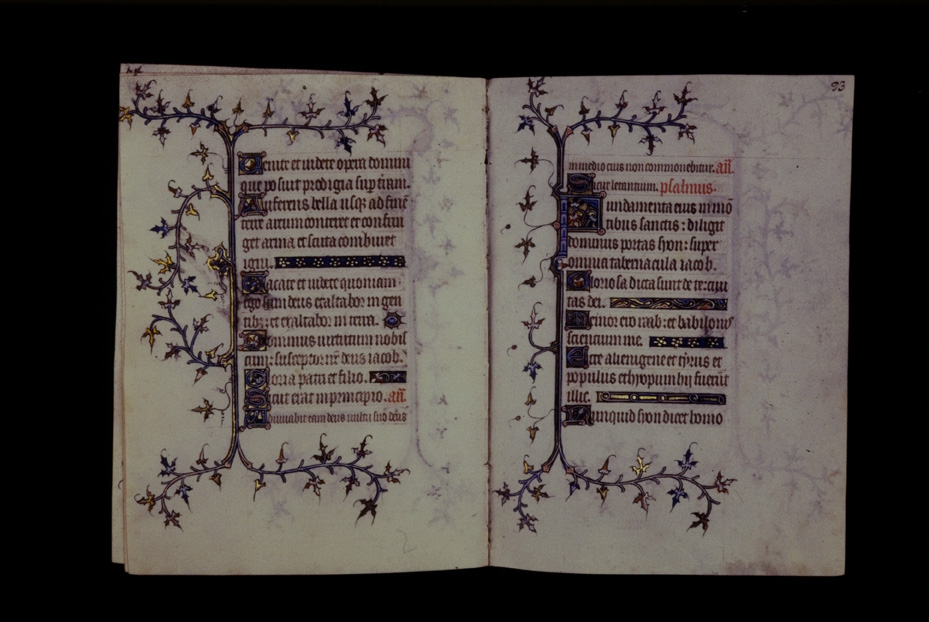 Uenite et uidete opera domini
que posuit prodigia sup terram.
Auferens bella usq; ad finē
terre arcum conteret et confrin
get arma et scuta comburet
igni.
Uacate et uidete quoniam
ego sum deus exaltabor in gen
tibz: et exaltabor in terra.
Dominus uirtutum nobis
cum: susceptor nr̄ deus iacob.
Gloria patri et filio.
Sicut erat in principio. añ.
Adiuuabit eam deus uultu suo deus
93
in medio eius non commouebitur. añ.
Sicut letantium. psalmus.
Fundamenta eius in mō
tibus sanctis: diligit
dominus portas syon: super
omnia tabernacula iacob.
Gloriosa dicta sunt de te: ciui
tas dei.
Memor ero raab: et babilonis
scientium me.
Ecce alienigene et tyrus et
populus ethyopum hii fuerūt
illic.
Nunquid syon dicet homo